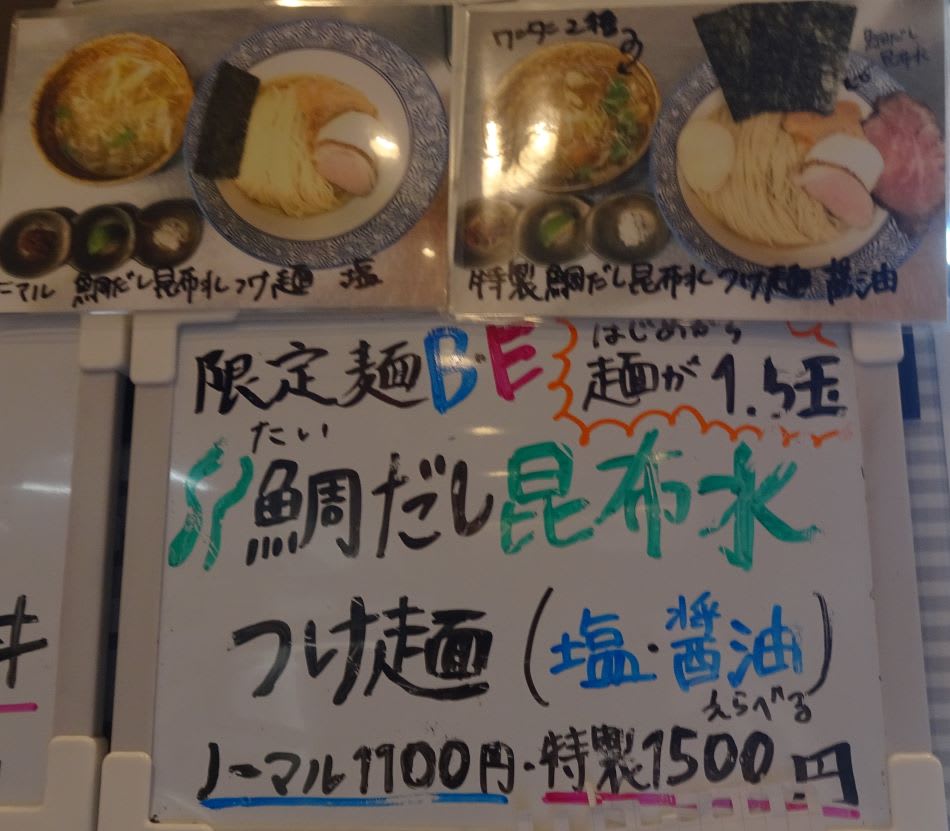 ノーマル 鯛だし昆布水つけ麺 塩
ワンタン2種
鯛だし
昆布水
特製鯛だし昆布水つけ麺 醤油
限定麺B・E
はじめから
麺が1.5玉
たい
鯛だし昆布水
つけ麺(塩・醤油)
えらべる
ノーマル1100円・特製1500円